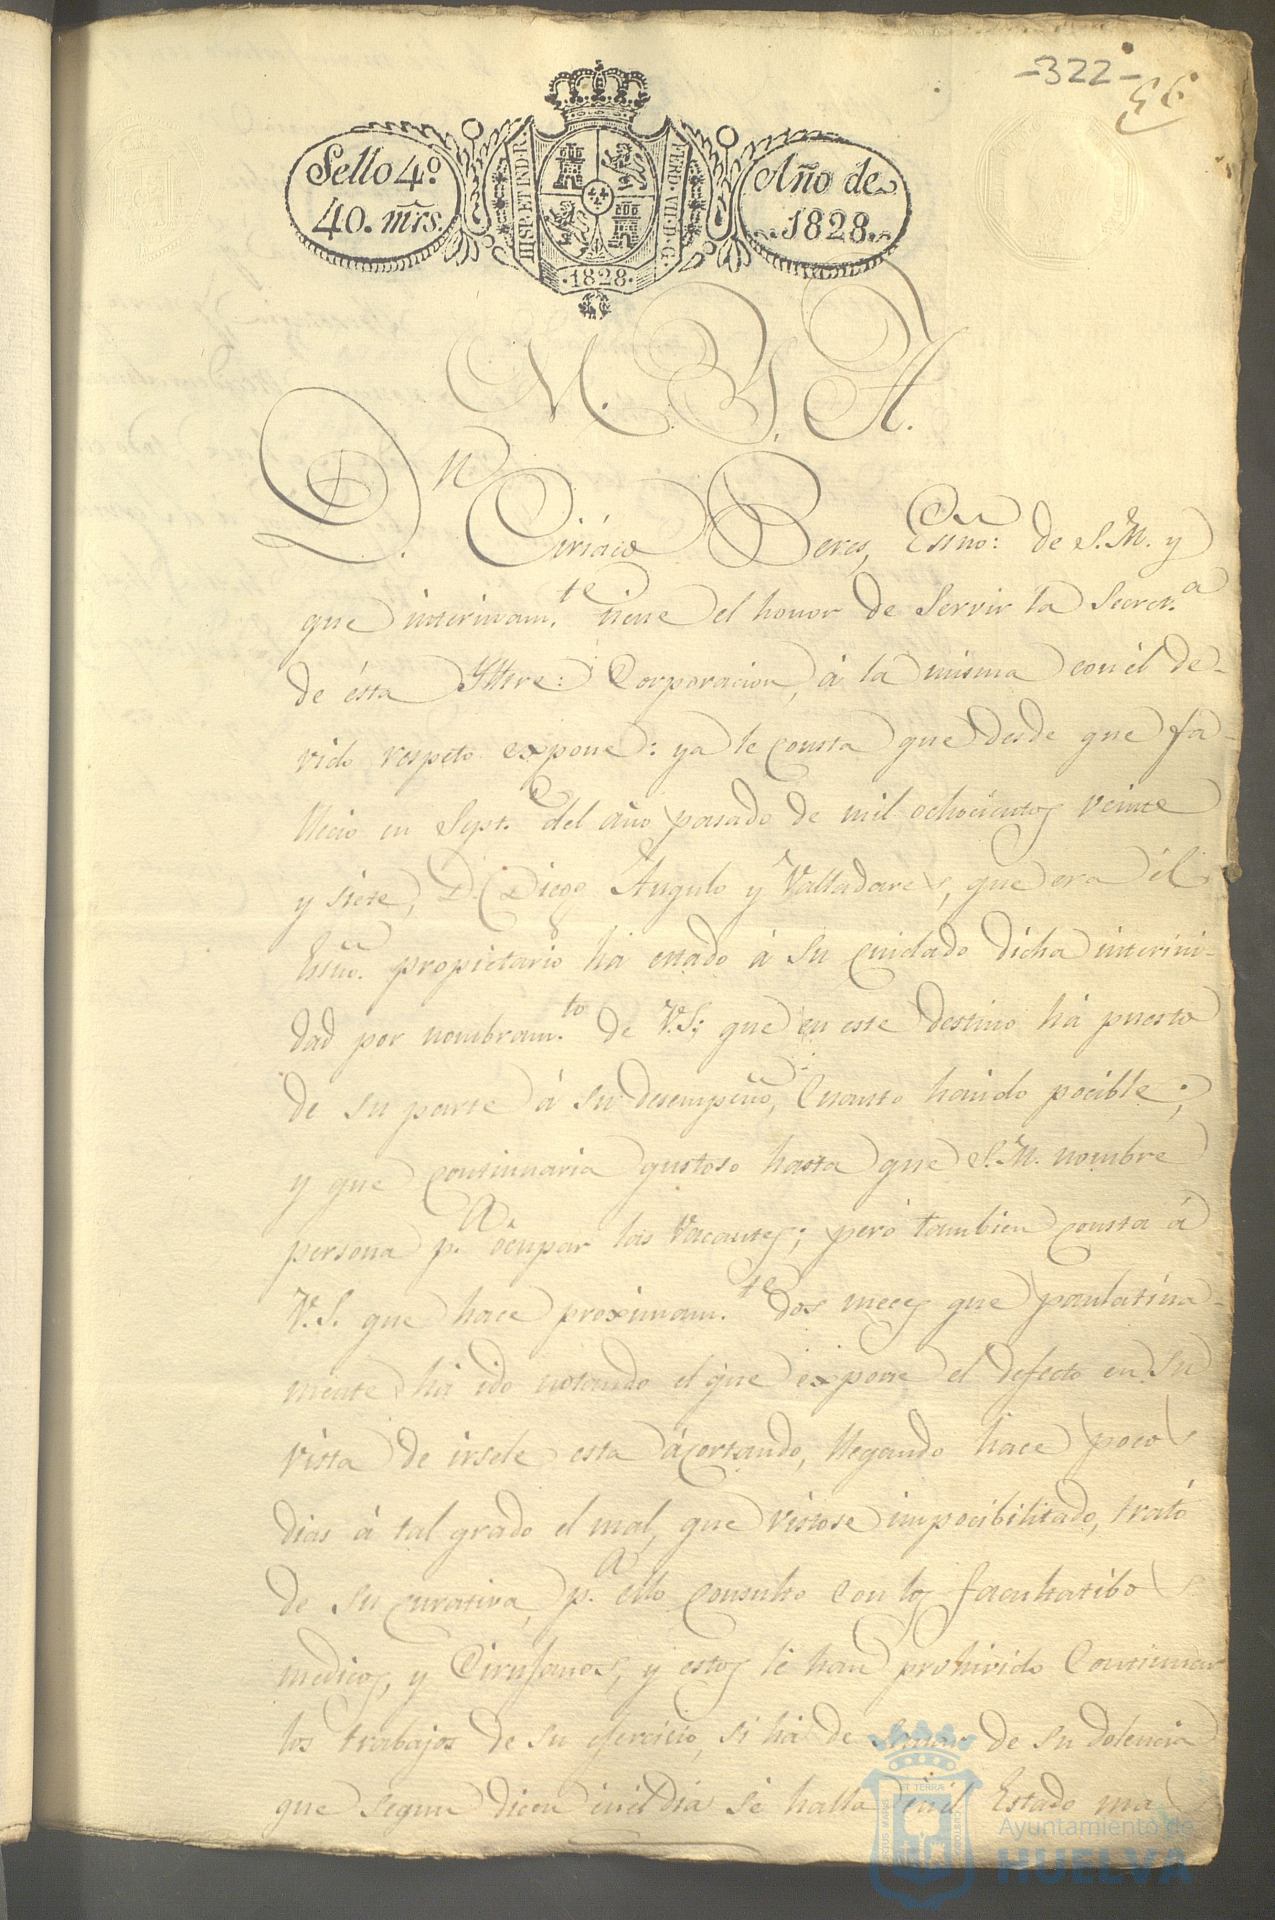 -322-
Sello 4º
40. mrs.
HISP. ET IND. R.
FERD. VII. D. G.
·1828·
Año de
1828.
M. Y. A.
D.n Ciriáco Beres, Essno: de S.M. y
que interinam.te tiene el honor de Servir la Secret.a
de ésta Yltre: Corporacion, á la misma con él de-
vido respeto expone: ya le consta que desde que fa-
llecio en Sept.e del año pasado de mil ochocientos veinte
y siete, D. Diego Ángulo y Valladares, que era él
Essno. propietario há estado á su cuidado dicha interini-
dad por nombram.to de V.S; que en este destino há puesto
de su parte á su desempeño, Cuanto haido pocible;
y que continuaria gustoso hasta que S.M. nombre
persona p.a ôcupar las Vacantes; pero tambien consta á
V.S. que hace proximam.te dos meces que paulatina-
mente há ido notando el que expone el defecto en su
vista de irsele esta ácortando, llegando hace pocos
dias á tal grado el mal, que vistose impocibilitado, trató
de su curativa, p.a ello consulto con los facultatibos
medicos, y Cirujanos, y estos le han prohivido Continuar
los trabajos de su ejercicio, si há de sanar de su dolencia
que segun dicen en el dia se halla en el Estado ma
Ayuntamiento de
HUELVA